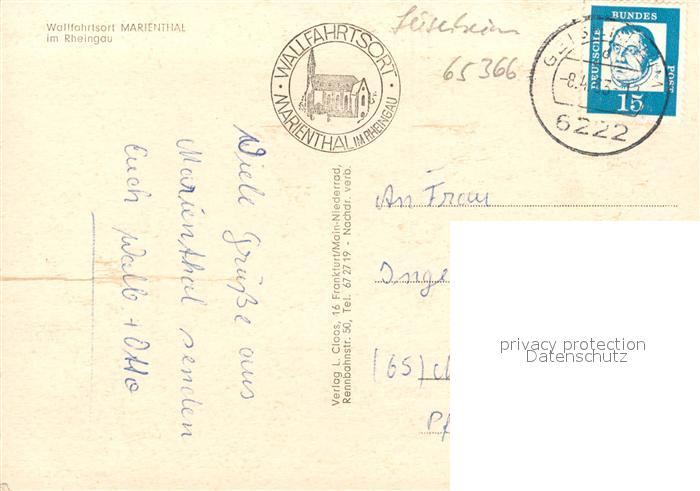 Wallfahrtsort MARIENTHAL
im Rheingau
· WALLFAHRTSORT ·
MARIENTHAL IM RHEINGAU
65366
DEUTSCHE BUNDESPOST
15
6222
Viele Grüße aus
Marienthal senden
Euch Walb + Otto
Verlag L. Cloos, 16 Frankfurt/Main-Niederrad,
Rennbahnstr. 50, Tel. 67 27 19 - Nachdr. verb.
An Frau
Inge
(65)
privacy protection
Datenschutz